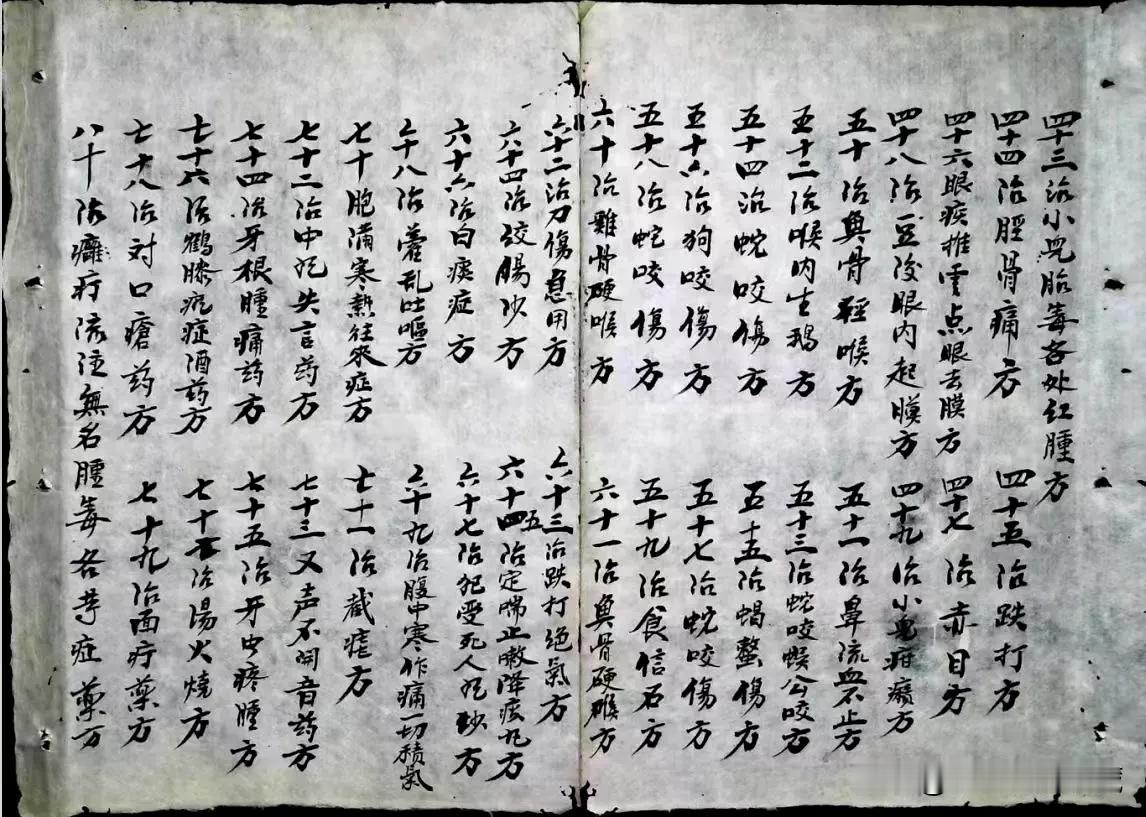 四十三治小兒胎毒各处红腫方
四十四治脛骨痛方
四十五治跌打方
四十六眼疾推雲点眼去膜方
四十七治赤目方
四十八治豆後眼内起膜方
四十九治小兒疳癀方
五十治魚骨硬喉方
五十一治鼻流血不止方
五十二治喉内生鵝方
五十三治蛇咬蜈公咬方
五十四治蛇咬傷方
五十五治蝎螫傷方
五十六治狗咬傷方
五十七治蛇咬傷方
五十八治蛇咬傷方
五十九治食信石方
六十治雞骨硬喉方
六十一治魚骨硬喉方
六十二治刀傷急用方
六十三治跌打绝氣方
六十四治絞腸沙方
六十五治定喘止嗽降痰丸方
六十六治白痰症方
六十七治犯受死人屍砂方
六十八治霍乱吐嘔方
六十九治腹中寒作痛一切積氣
七十胞满寒熱往來症方
七十一治截瘧方
七十二治中風失言药方
七十三又声不開音药方
七十四治牙根腫痛药方
七十五治牙虫疼腫方
七十六治鶴膝風症酒药方
七十七治湯火燒方
七十八治对口瘡药方
七十九治面疔藥方
八十治癰疔流注無名腫毒各等症藥方